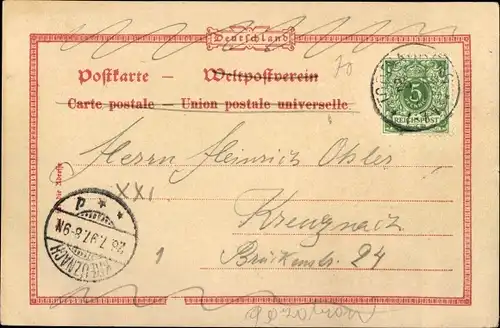 Deutschland
Postkarte – Weltpostverein
Carte postale – Union postale universelle
70
5
REICHSPOST
Herrn Heinrich
XXI
Kreuznach
Brückenstr. 24
KREUZNACH
28.7.97.8-9N.
1